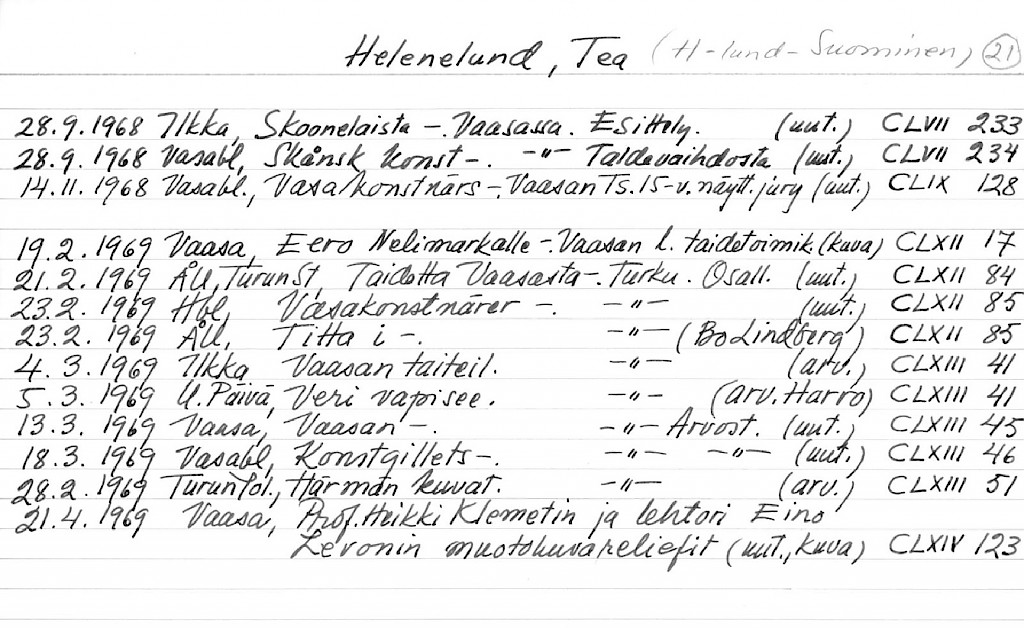 Helenelund, Tea (H-lund-Suominen) 21
28.9.1968 Ilkka, Skoonelaista -. Vaasassa. Esittely. (uut.) CLVII 233
28.9.1968 Vasabl, Skånsk konst -. -"- Taidevaihdosta (uut.) CLVII 234
14.11.1968 Vasabl., Vasa/konstnärs -. Vaasan Ts. 15-v. näytt. jury (uut.) CLIX 128
19.2.1969 Vaasa, Eero Nelimarkalle -. Vaasan l. taidetoimik (kuva) CLXII 17
21.2.1969 ÅU, TurunSt, Taidetta Vaasasta -. Turku. Osall. (uut.) CLXII 84
23.2.1969 Hbl, Vasakonstnärer -. -"- (uut.) CLXII 85
23.2.1969 ÅU, Titta i -. -"- (Bo Lindberg) CLXII 85
4.3.1969 Ilkka Vaasan taiteil. -"- (arv.) CLXIII 41
5.3.1969 U.Päivä, Veri vapisee. -"- (arv. Harro) CLXIII 41
13.3.1969 Vaasa, Vaasan -. -"- Arvost. (uut.) CLXIII 45
18.3.1969 Vasabl, Konstgillets -. -"- -"- (uut.) CLXIII 46
28.2.1969 TurunPäl., Härmän kuvat. -"- (arv.) CLXIII 51
21.4.1969 Vaasa, Prof. Heikki Klemetin ja lehtori Eino
Levonin muotokuvareliefit (uut., kuva) CLXIV 123